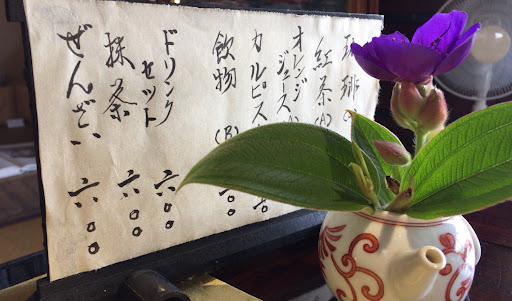 珈琲
紅茶(A)
オレンジ
ジュース
カルピス
飲物(B)
ドリンク
セット 六〇〇
抹茶 六〇〇
ぜんざい 六〇〇